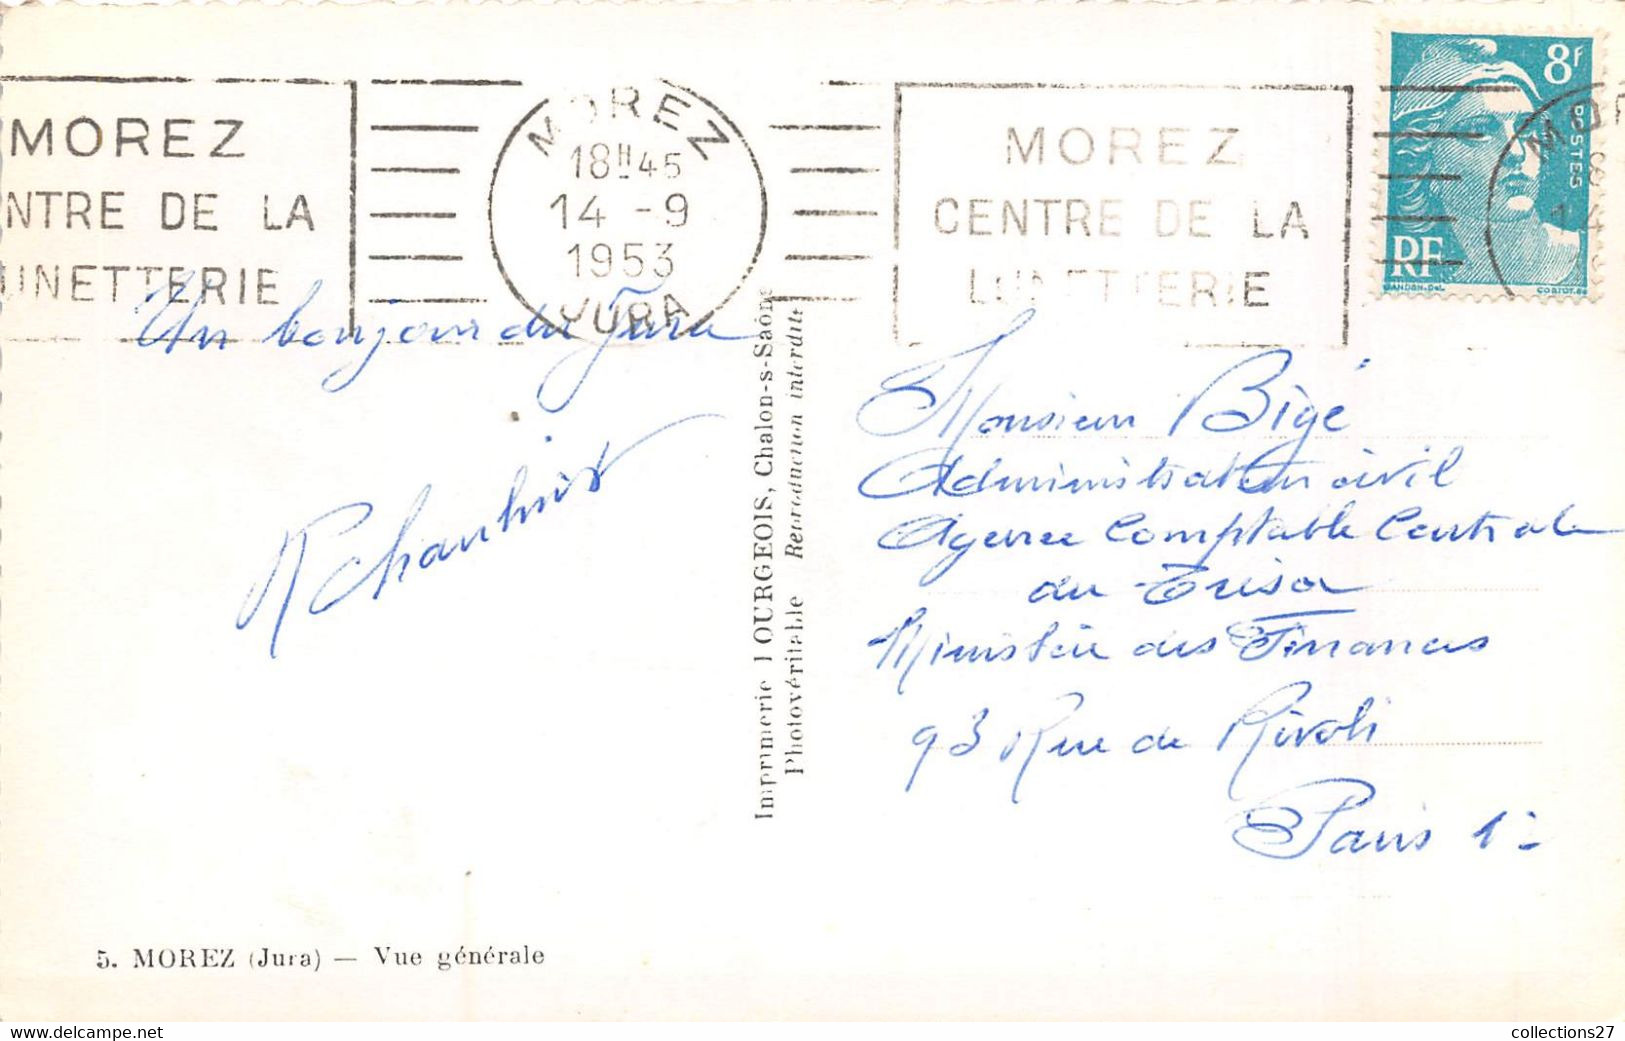 MOREZ
NTRE DE LA
UNETTERIE
MOREZ
18H45
14 - 9
1953
JURA
MOREZ
CENTRE DE LA
LUNETTERIE
8F
POSTES
RF
GANDON.DEL
Un bonjour du Jura
Monsieur Bigé
Administrateur civil
Agence Comptable Centrale
du Trésor
Ministère des Finances
93 Rue de Rivoli
Paris 1
Imprimerie BOURGEOIS, Chalon-s-Saône
Photovéritable Reproduction interdite
5. MOREZ (Jura) — Vue générale
collections27